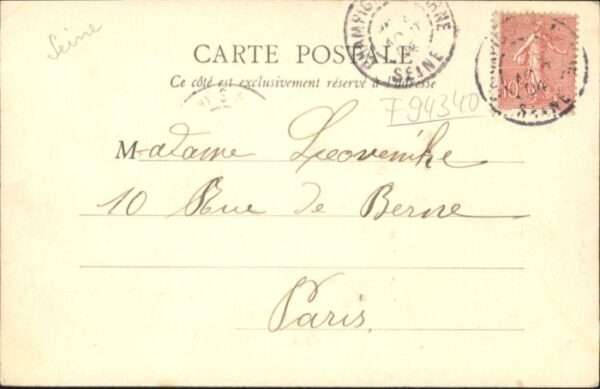 Seine
CARTE POSTALE
Ce côté est exclusivement réservé à l'adresse
SEINE
SEINE
10
F 94340
Madame
10 Rue de Berne
Paris.